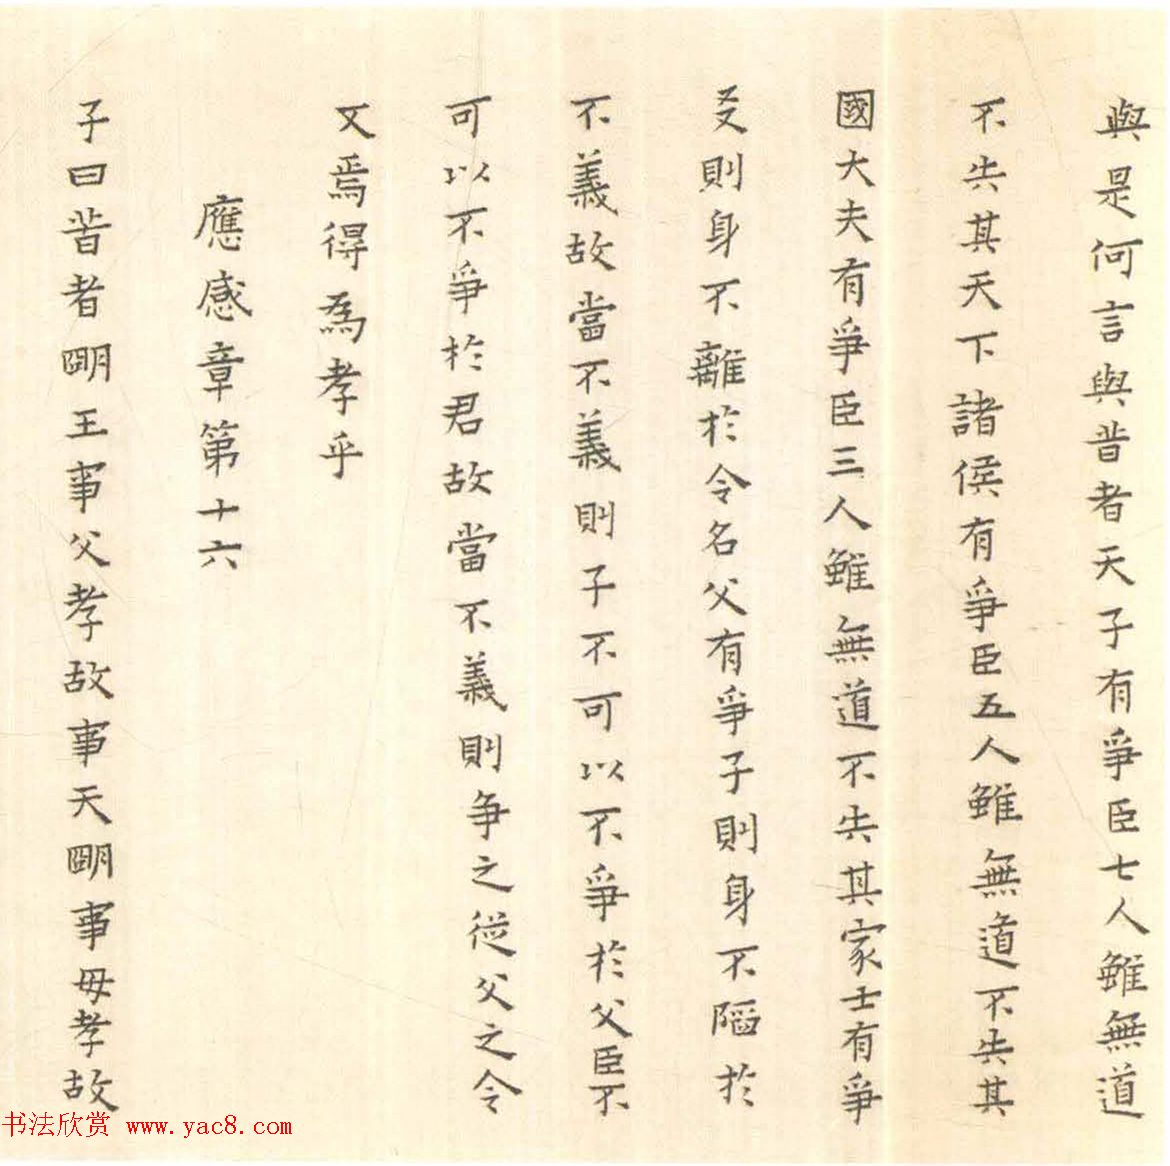 與是何言與昔者天子有爭臣七人雖無道
不失其天下諸侯有爭臣五人雖無道不失其
國大夫有爭臣三人雖無道不失其家士有爭
友則身不離於令名父有爭子則身不陷於
不義故當不義則子不可以不爭於父臣不
可以不爭於君故當不義則争之從父之令
又焉得為孝乎
應感章第十六
子曰昔者明王事父孝故事天明事母孝故
书法欣赏 www.yac8.com